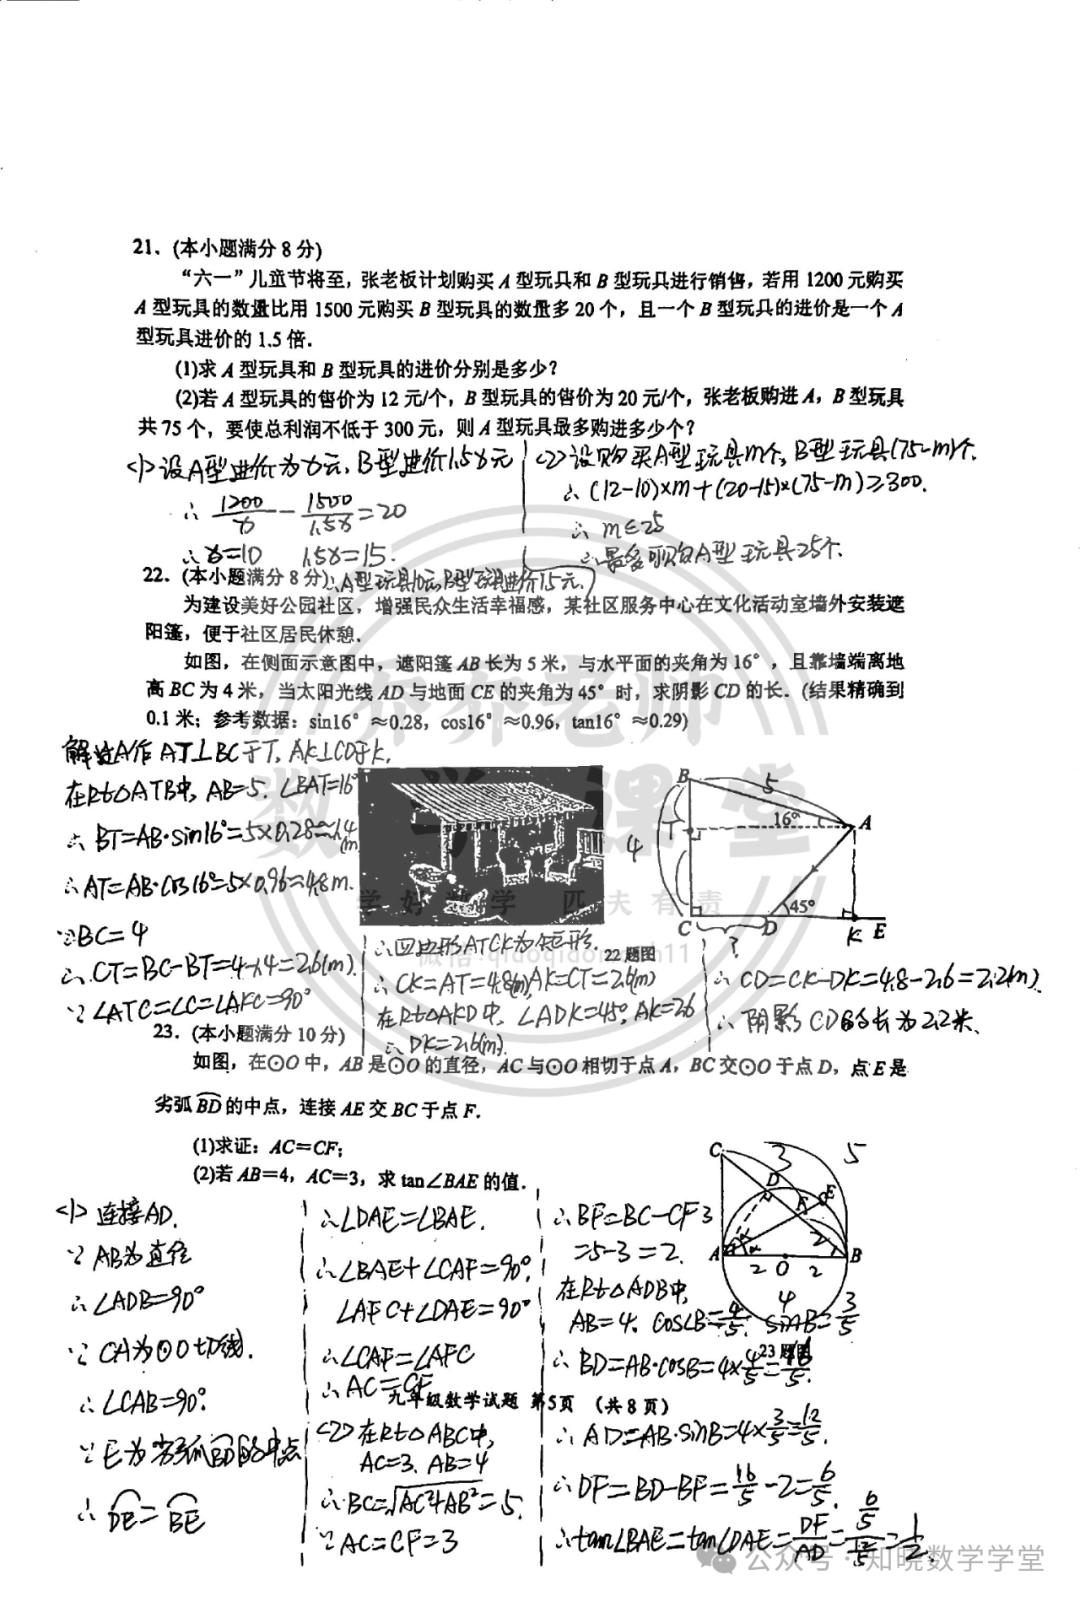 21. (本小题满分8分)
“六一”儿童节将至，张老板计划购买A型玩具和B型玩具进行销售，若用1200元购买
A型玩具的数量比用1500元购买B型玩具的数量多20个，且一个B型玩具的进价是一个A
型玩具进价的1.5倍.
(1)求A型玩具和B型玩具的进价分别是多少？
(2)若A型玩具的售价为12元/个，B型玩具的售价为20元/个，张老板购进A，B型玩具
共75个，要使总利润不低于300元，则A型玩具最多购进多少个？
<1>设A型进价为x元，B型进价1.5x元
∴ 1200/x - 1500/1.5x =20
∴x=10 1.5x=15.
∴A型玩具10元，B型玩具进价15元.
<2>设购买A型玩具m个，B型玩具(75-m)个.
∴(12-10)×m+(20-15)×(75-m)≥300.
∴m≤25
∴最多可购A型玩具25个.
22. (本小题满分8分)
为建设美好公园社区，增强民众生活幸福感，某社区服务中心在文化活动室墙外安装遮
阳篷，便于社区居民休憩.
如图，在侧面示意图中，遮阳篷AB长为5米，与水平面的夹角为16°，且靠墙端离地
高BC为4米，当太阳光线AD与地面CE的夹角为45°时，求阴影CD的长.(结果精确到
0.1米；参考数据：sin16°≈0.28，cos16°≈0.96，tan16°≈0.29)
解:过A作AT⊥BC于T，AK⊥CD于K，
在Rt△ATB中，AB=5. ∠BAT=16°
∴BT=AB·sin16°=5×0.28≈1.4(m
∴AT=AB·cos16°=5×0.96≈4.8m.
∵BC=4
∴CT=BC-BT=4-1.4=2.6(m)
∵∠ATC=∠C=∠AKC=90°
∴四边形ATCK为矩形.
∴CK=AT=4.8(m)AK=CT=2.6(m)
在Rt△AKD中，∠ADK=45°，AK=2.6
∴DK=2.6(m).
∴CD=CK-DK=4.8-2.6=2.2(m).
∴阴影CD的长为2.2米、
B 5 16° A T 4 45° C D K E ?
22题图
23. (本小题满分10分)
如图，在⊙O中，AB是⊙O的直径，AC与⊙O相切于点A，BC交⊙O于点D，点E是
劣弧BD的中点，连接AE交BC于点F.
(1)求证：AC=CF；
(2)若AB=4，AC=3，求tan∠BAE的值.
<1>连接AD.
∵AB为直径
∴∠ADB=90°
∵CA为⊙O切线.
∴∠CAB=90°.
∵E为劣弧BD的中点
∴DE=BE
∴∠DAE=∠BAE.
∴∠BAE+∠CAF=90°.
∠AFC+∠DAE=90°
∴∠CAF=∠AFC
∴AC=CF
<2>在Rt△ABC中，
AC=3. AB=4
∴BC=√AC²+AB²=5.
∵AC=CF=3
∴BF=BC-CF
=5-3=2.
在Rt△ADB中，
AB=4. cos∠B=4/5. sinB=3/5
∴BD=AB·cosB=4×4/5=16/5.
∴AD=AB·sinB=4×3/5=12/5.
∴DF=BD-BF=16/5-2=6/5.
∴tan∠BAE=tan∠DAE=DF/AD=6/5/12/5=1/2.
C 3 5 D F E 3 2 A 2 O 2 B 4
23题图
九年级数学试题 第5页 (共8页)
乔乔老师
数学课堂
学好数学 匹夫有责
公众号·知晓数学学堂